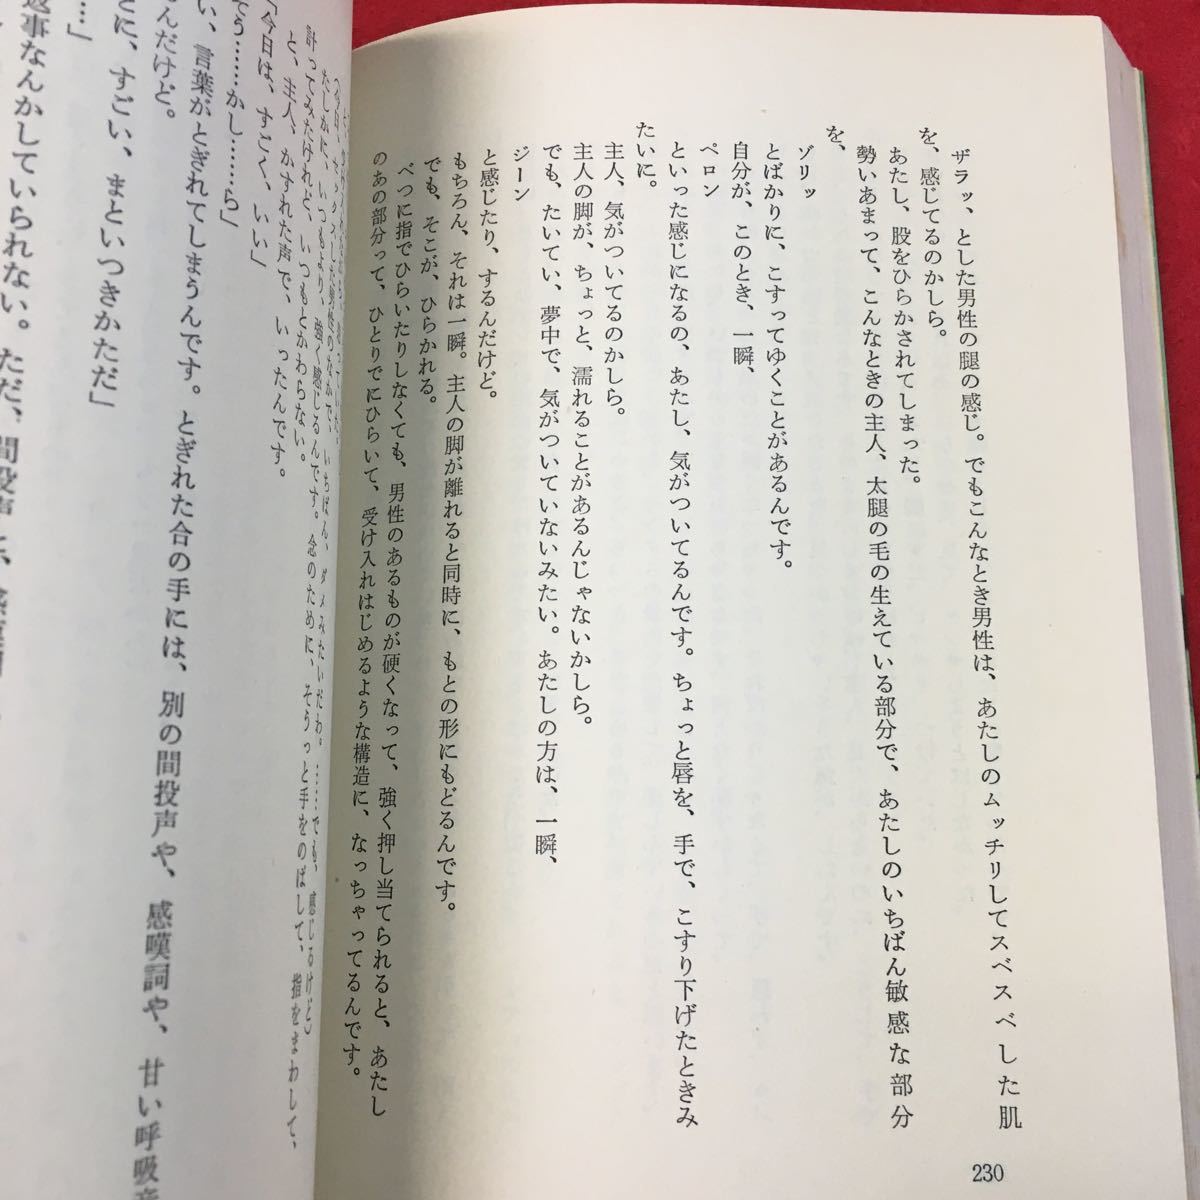 ザラッ、とした男性の腿の感じ。でもこんなとき男性は、あたしのムッチリしてスベスベした肌
を、感じてるのかしら。
あたし、股をひらかされてしまった。
勢いあまって、こんなときの主人、太腿の毛の生えている部分で、あたしのいちばん敏感な部分
を、
ゾリッ
とばかりに、こすってゆくことがあるんです。
自分が、このとき、一瞬、
ペロン
といった感じになるの、あたし、気がついてるんです。ちょっと唇を、手で、こすり下げたときみ
たいに。
主人、気がついてるのかしら。
主人の脚が、ちょっと、濡れることがあるんじゃないかしら。
でも、たいてい、夢中で、気がついていないみたい。あたしの方は、一瞬、
ジーン
と感じたり、するんだけど。
もちろん、それは一瞬。主人の脚が離れると同時に、もとの形にもどるんです。
でも、そこが、ひらかれる。
べつに指でひらいたりしなくても、男性のあるものが硬くなって、強く押し当てられると、あたし
のあの部分って、ひとりでにひらいて、受け入れはじめるような構造に、なっちゃってるんです。
230
たしかに、いつもより、強く感じるんです。念のために、そうっと手をのばして、指をまわして、
計ってみたけれど、いつもとかわらない。
と、主人、かすれた声で、いったんです。
「今日は、すごく、いい」
てう……かし……ら」
い、言葉がとぎれてしまうんです。とぎれた合の手には、別の間投声や、感嘆詞や、甘い呼吸音
るんだけど。
とに、すごい、まといつきかただ」
…」
返事なんかしていられない。ただ、間投声